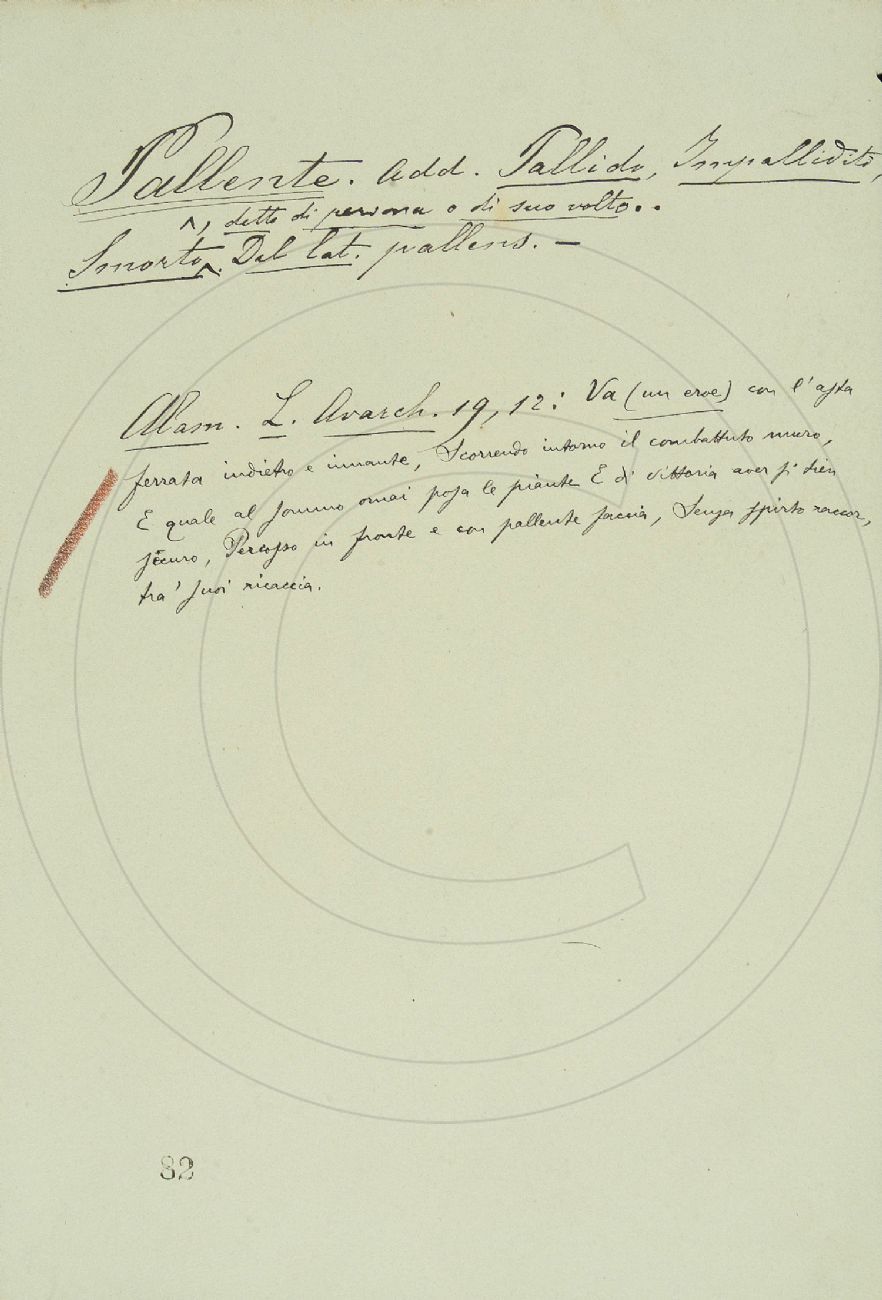 Pallente. Add. Pallido, Impallidito,
^, detto di persona o di suo volto..
Smorto^. Dal lat. pallens. –
Alam. L. Avarch. 19, 12: Va (un eroe) con l'asta
ferrata indietro e innante, Scorrendo intorno il combattuto muro,
E quale al sommo omai posa le piante E di vittoria aver si tien
securo, Percosso in fronte e con pallente faccia, Senza spirto raccor,
tra' suoi ricaccia.
82